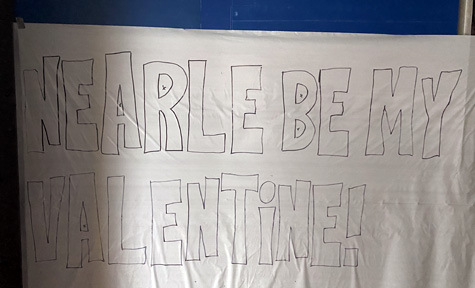 NEARLE BE MY
VALENTiNE!